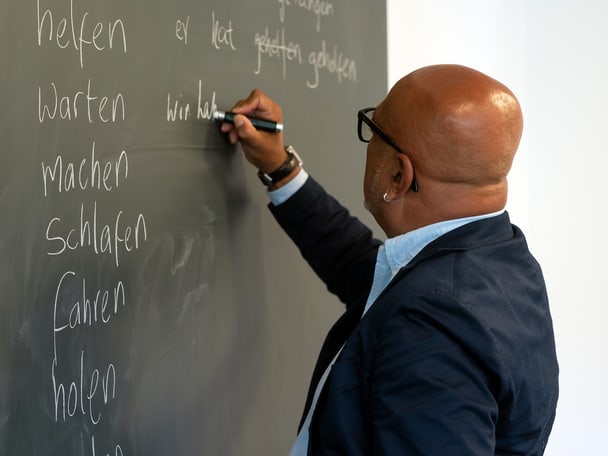 helfen er hat geholfen
warten wir hab
machen
schlafen
fahren
holen